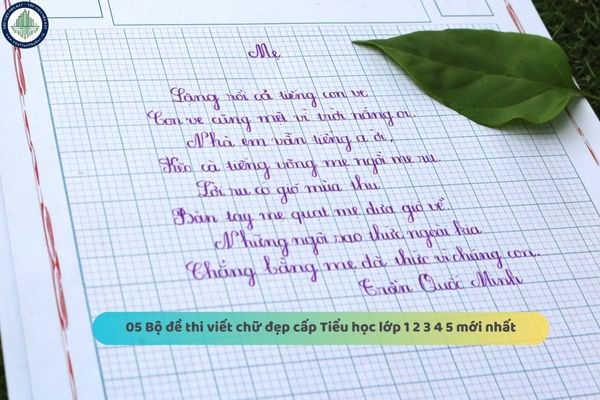 Mẹ
Lặng rồi cả tiếng con ve
Con ve cũng mệt vì trời nắng oi.
Nhà em vẫn tiếng ạ ời,
Kẽo cà tiếng võng mẹ ngồi mẹ ru.
Lời ru có gió mùa thu
Bàn tay mẹ quạt mẹ đưa gió về
Những ngôi sao thức ngoài kia
Chẳng bằng mẹ đã thức vì chúng con.
Trần Quốc Minh
05 Bộ đề thi viết chữ đẹp cấp Tiểu học lớp 1 2 3 4 5 mới nhất